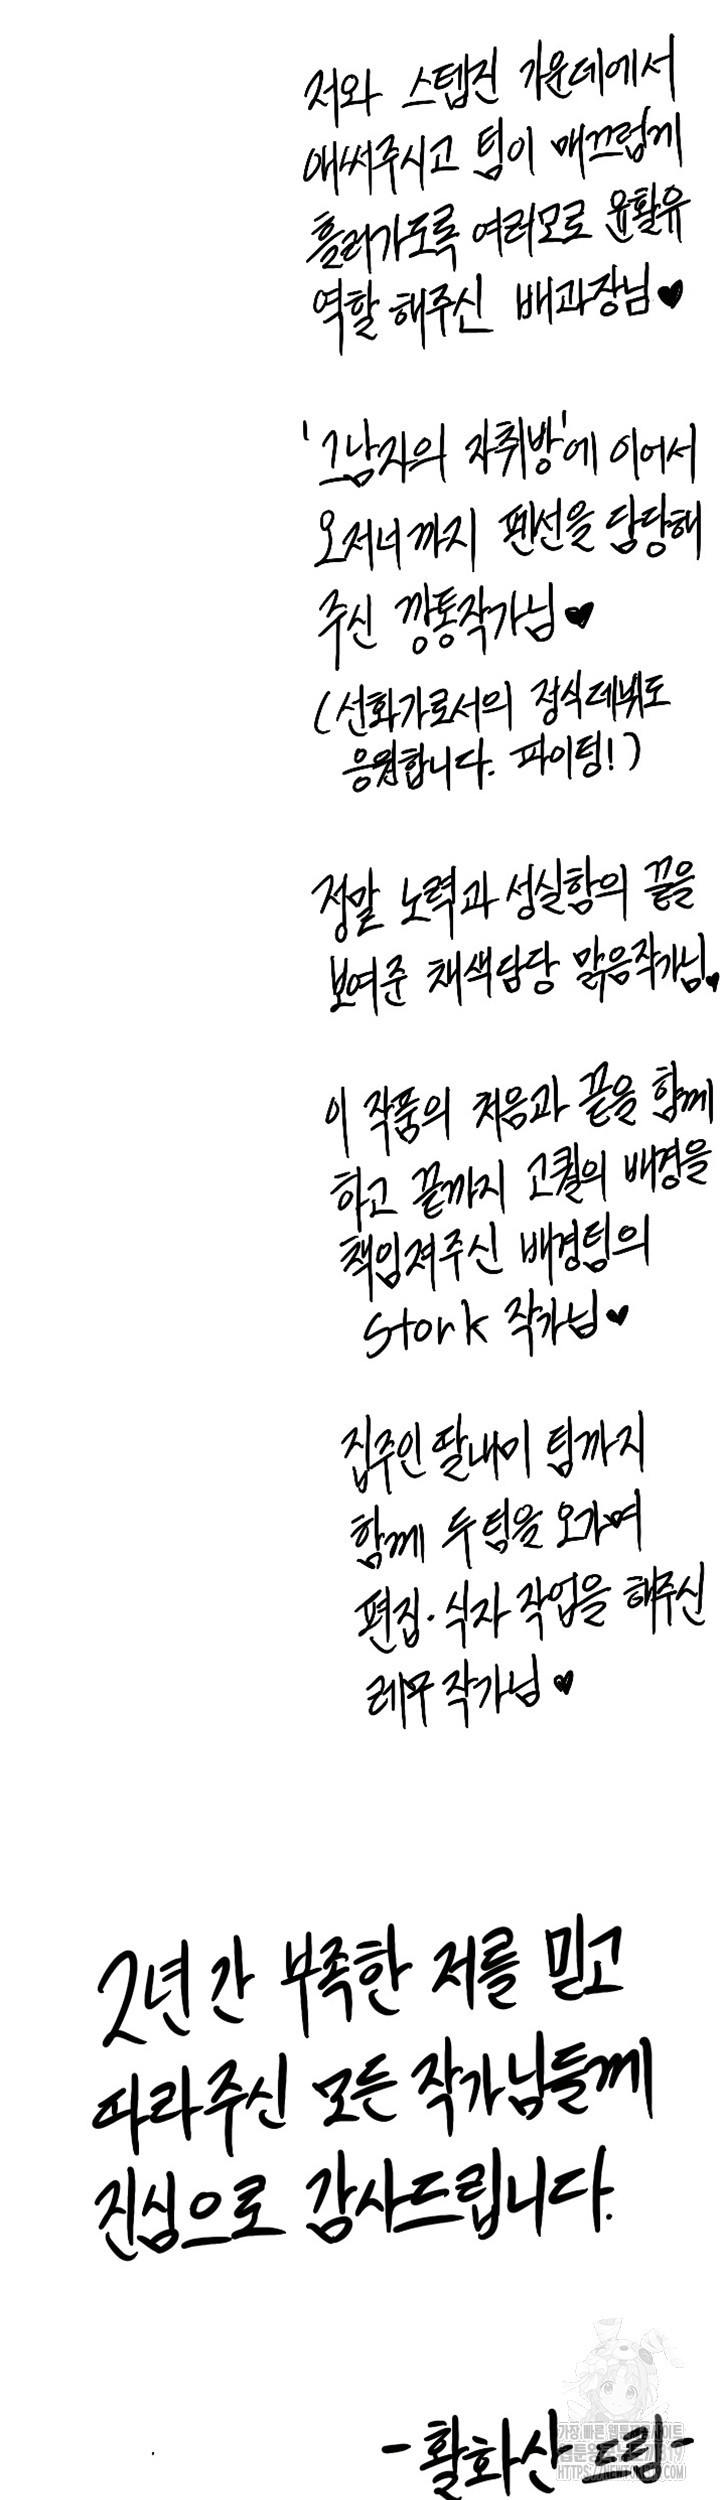 저와 스텝진 가운데에서
애써주시고 팀이 매끄럽게
흘러가도록 여러모로 윤활유
역할 해주신 배과장님♥
'그남자의 자취방'에 이어서
오저녀까지 펜선을 담당해
주신 깡통작가님♥
(선화가로서의 정식데뷔도
응원합니다. 파이팅!)
정말 노력과 성실함의 끝을
보여준 채색담당 막음작가님♥
이 작품의 처음과 끝을 함께
하고 끝까지 고퀄의 배경을
책임져주신 배경팀의
Stork 작가님♥
집주인 딸내미 팀까지
함께 두 팀을 오가며
편집·식자 작업을 해주신
레무 작가님♥
2년간 부족한 저를 믿고
따라주신 모든 작가님들께
진심으로 감사드립니다.
-활화산 드림-
가장 빠른 웹툰